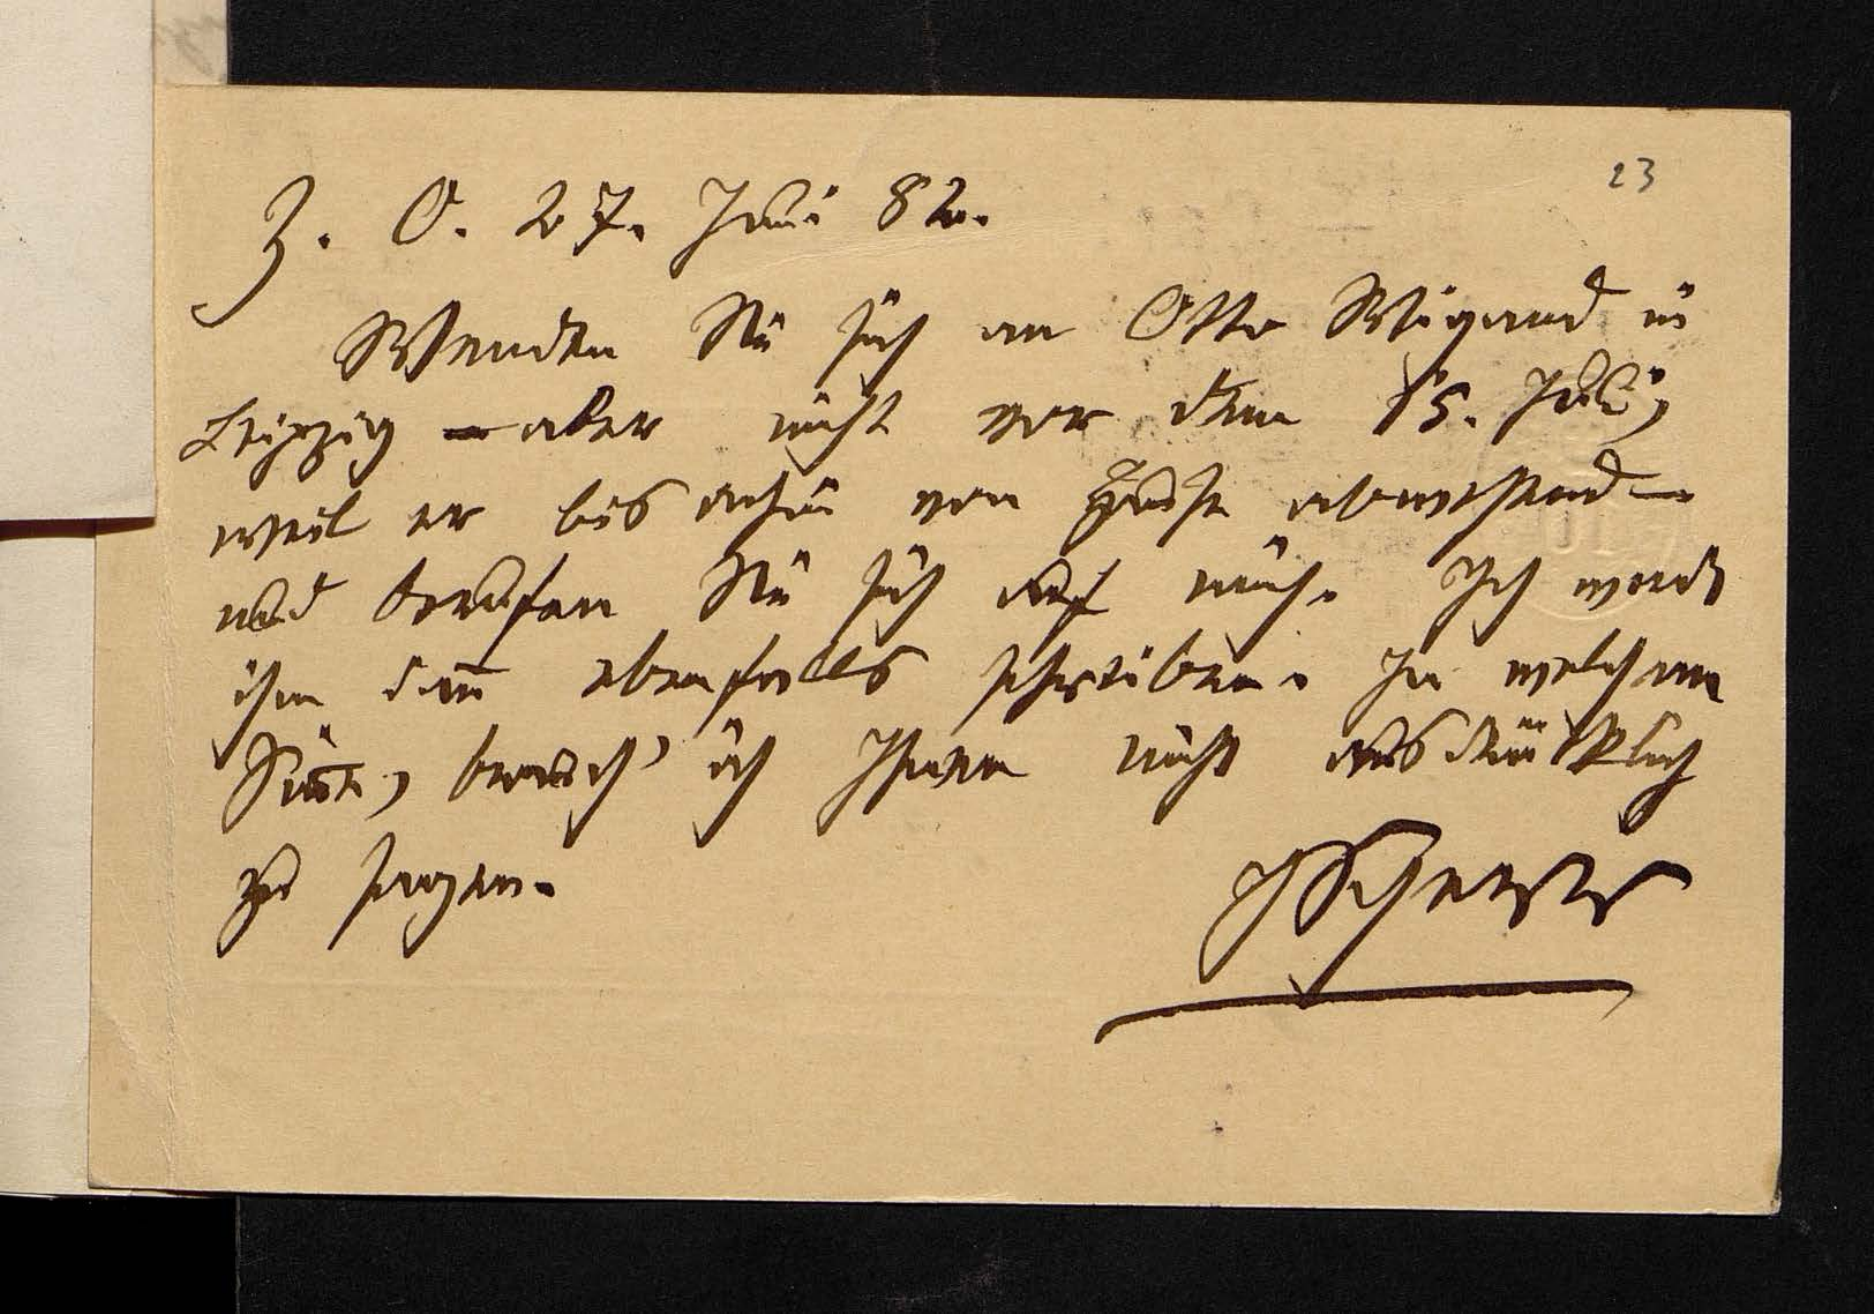 23
Z. O. 27. Juni 82.
Wenden Sie sich an Otto Wigand in
Leipzig – aber nicht vor dem 15. Juli,
weil er bis dahin von Hause abwesend –
und berufen Sie sich auf mich. Ich werde
ihm dann ebenfalls schreiben. In welchem
Sinne, brauch' ich Ihnen nicht ausdrücklich
zu sagen.
JScherr